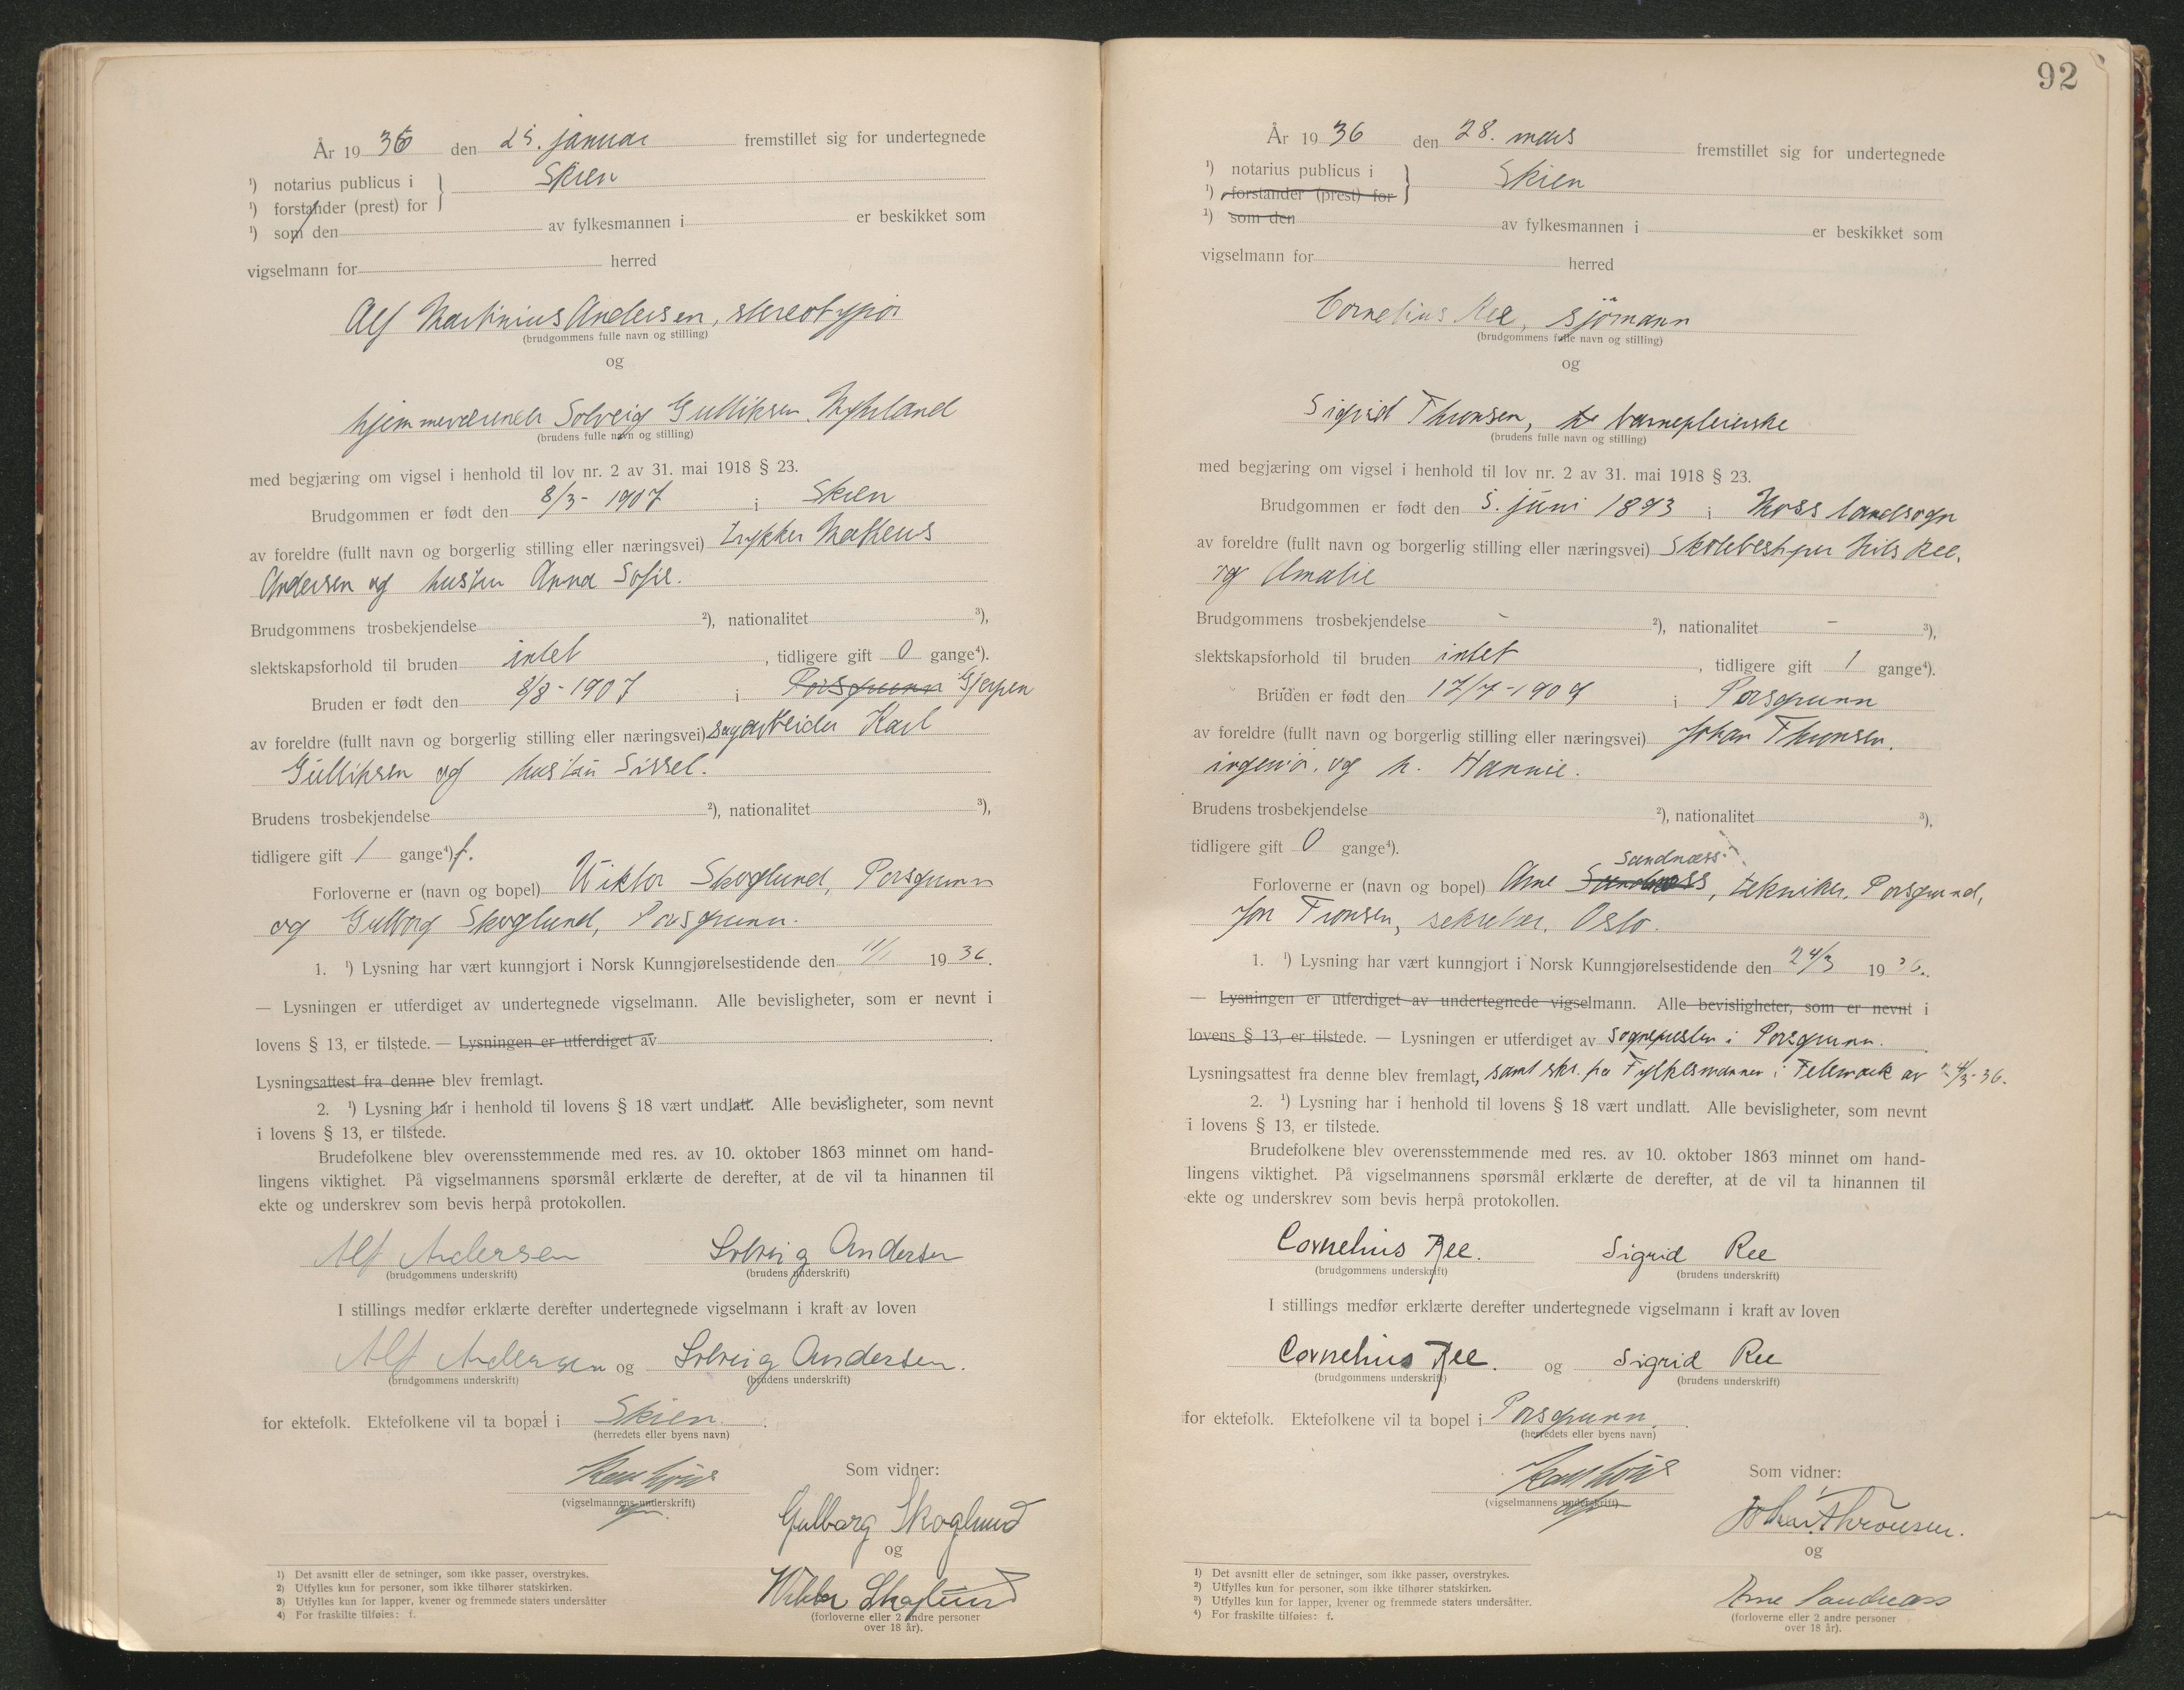 År 1936 den 25. januar fremstillet sig for undertegnede
¹) notarius publicus i } Skien
¹) forstander (prest) for
¹) som den av fylkesmannen i er beskikket som
vigselmann for herred
Alf Martinius Andersen, stereotypør
(brudgommens fulle navn og stilling)
og
hjemmeværende Solveig Gulliksen
(brudens fulle navn og stilling)
med begjæring om vigsel i henhold til lov nr. 2 av 31. mai 1918 § 23.
Brudgommen er født den 8/3- 1907 i Skien
av foreldre (fullt navn og borgerlig stilling eller næringsvei) Trykker Matheus
Andersen og hustru Anna Sofie.
Brudgommens trosbekjendelse ²), nationalitet ³),
slektskapsforhold til bruden intet, tidligere gift 0 gange⁴).
Bruden er født den 8/8-1907 i Porsgrunn Gjerpen
av foreldre (fullt navn og borgerlig stilling eller næringsvei) sagarbeider Karl
Gulliksen og hustru Sissel.
Brudens trosbekjendelse ²), nationalitet ³),
tidligere gift 1 gange⁴) f.
Forloverne er (navn og bopel) Viktor Skoglund, Porsgrunn
og Gulborg Skoglund, Porsgrunn.
1. ¹) Lysning har vært kunngjort i Norsk Kunngjørelsestidende den 11/1 1936.
— Lysningen er utferdiget av undertegnede vigselmann. Alle bevisligheter, som er nevnt i
lovens § 13, er tilstede. — Lysningen er utferdiget av
Lysningsattest fra denne blev fremlagt.
2. ¹) Lysning har i henhold til lovens § 18 vært undlatt. Alle bevisligheter, som nevnt
i lovens § 13, er tilstede.
Brudefolkene blev overensstemmende med res. av 10. oktober 1863 minnet om hand-
lingens viktighet. På vigselmannens spørsmål erklærte de derefter, at de vil ta hinannen til
ekte og underskrev som bevis herpå protokollen.
Alf Andersen Solveig Andersen
(brudgommens underskrift) (brudens underskrift)
I stillings medfør erklærte derefter undertegnede vigselmann i kraft av loven
Alf Andersen og Solveig Andersen.
(brudgommens underskrift) (brudens underskrift)
for ektefolk. Ektefolkene vil ta bopæl i Skien.
(herredets eller byens navn)
Som vidner:
(vigselmannens underskrift)
Gulborg Skoglund
og
Viktor Skoglund
(forloverne eller 2 andre personer
over 18 år).
1) Det avsnitt eller de setninger, som ikke passer, overstrykes.
2) Utfylles kun for personer, som ikke tilhører statskirken.
3) Utfylles kun for lapper, kvener og fremmede staters undersåtter
4) For fraskilte tilføies: f.
92
År 1936 den 28. mars fremstillet sig for undertegnede
¹) notarius publicus i } Skien
¹) forstander (prest) for
¹) som den av fylkesmannen i er beskikket som
vigselmann for herred
Cornelius Ree, sjömann
(brudgommens fulle navn og stilling)
og
Sigrid Thronsen, barnepleierske
(brudens fulle navn og stilling)
med begjæring om vigsel i henhold til lov nr. 2 av 31. mai 1918 § 23.
Brudgommen er født den 5. juni 1893 i Moss landsogn
av foreldre (fullt navn og borgerlig stilling eller næringsvei) Skolebestyrer Nils Ree.
og Amalie
Brudgommens trosbekjendelse - ²), nationalitet - ³),
slektskapsforhold til bruden intet, tidligere gift 1 gange⁴).
Bruden er født den 17/7-1909 i Porsgrunn
av foreldre (fullt navn og borgerlig stilling eller næringsvei) Johan Thronsen.
ingeniør, og h. Hannie.
Brudens trosbekjendelse ²), nationalitet ³),
tidligere gift 0 gange⁴).
Sandnæss
Forloverne er (navn og bopel) Arne Sandness, tekniker, Porsgrund,
Jon Tronsen, sekretær, Oslo.
1. ¹) Lysning har vært kunngjort i Norsk Kunngjørelsestidende den 24/3 1936.
— Lysningen er utferdiget av undertegnede vigselmann. Alle bevisligheter, som er nevnt i
lovens § 13, er tilstede. — Lysningen er utferdiget av Sognepresten i Porsgrunn.
Lysningsattest fra denne blev fremlagt, samt skr. fra Fylkesmannen i Telemark av 24/3-36.
2. ¹) Lysning har i henhold til lovens § 18 vært undlatt. Alle bevisligheter, som nevnt
i lovens § 13, er tilstede.
Brudefolkene blev overensstemmende med res. av 10. oktober 1863 minnet om hand-
lingens viktighet. På vigselmannens spørsmål erklærte de derefter, at de vil ta hinannen til
ekte og underskrev som bevis herpå protokollen.
Cornelius Ree. Sigrid Ree
(brudgommens underskrift) (brudens underskrift)
I stillings medfør erklærte derefter undertegnede vigselmann i kraft av loven
Cornelius Ree. og Sigrid Ree
(brudgommens underskrift) (brudens underskrift)
for ektefolk. Ektefolkene vil ta bopel i Porsgrunn.
(herredets eller byens navn)
Som vidner:
(vigselmannens underskrift)
Johan Thronsen.
og
Arne Sandnæss
(forloverne eller 2 andre personer
over 18 år).
1) Det avsnitt eller de setninger, som ikke passer, overstrykes.
2) Utfylles kun for personer, som ikke tilhører statskirken.
3) Utfylles kun for lapper, kvener og fremmede staters undersåtter.
4) For fraskilte tilføies: f.